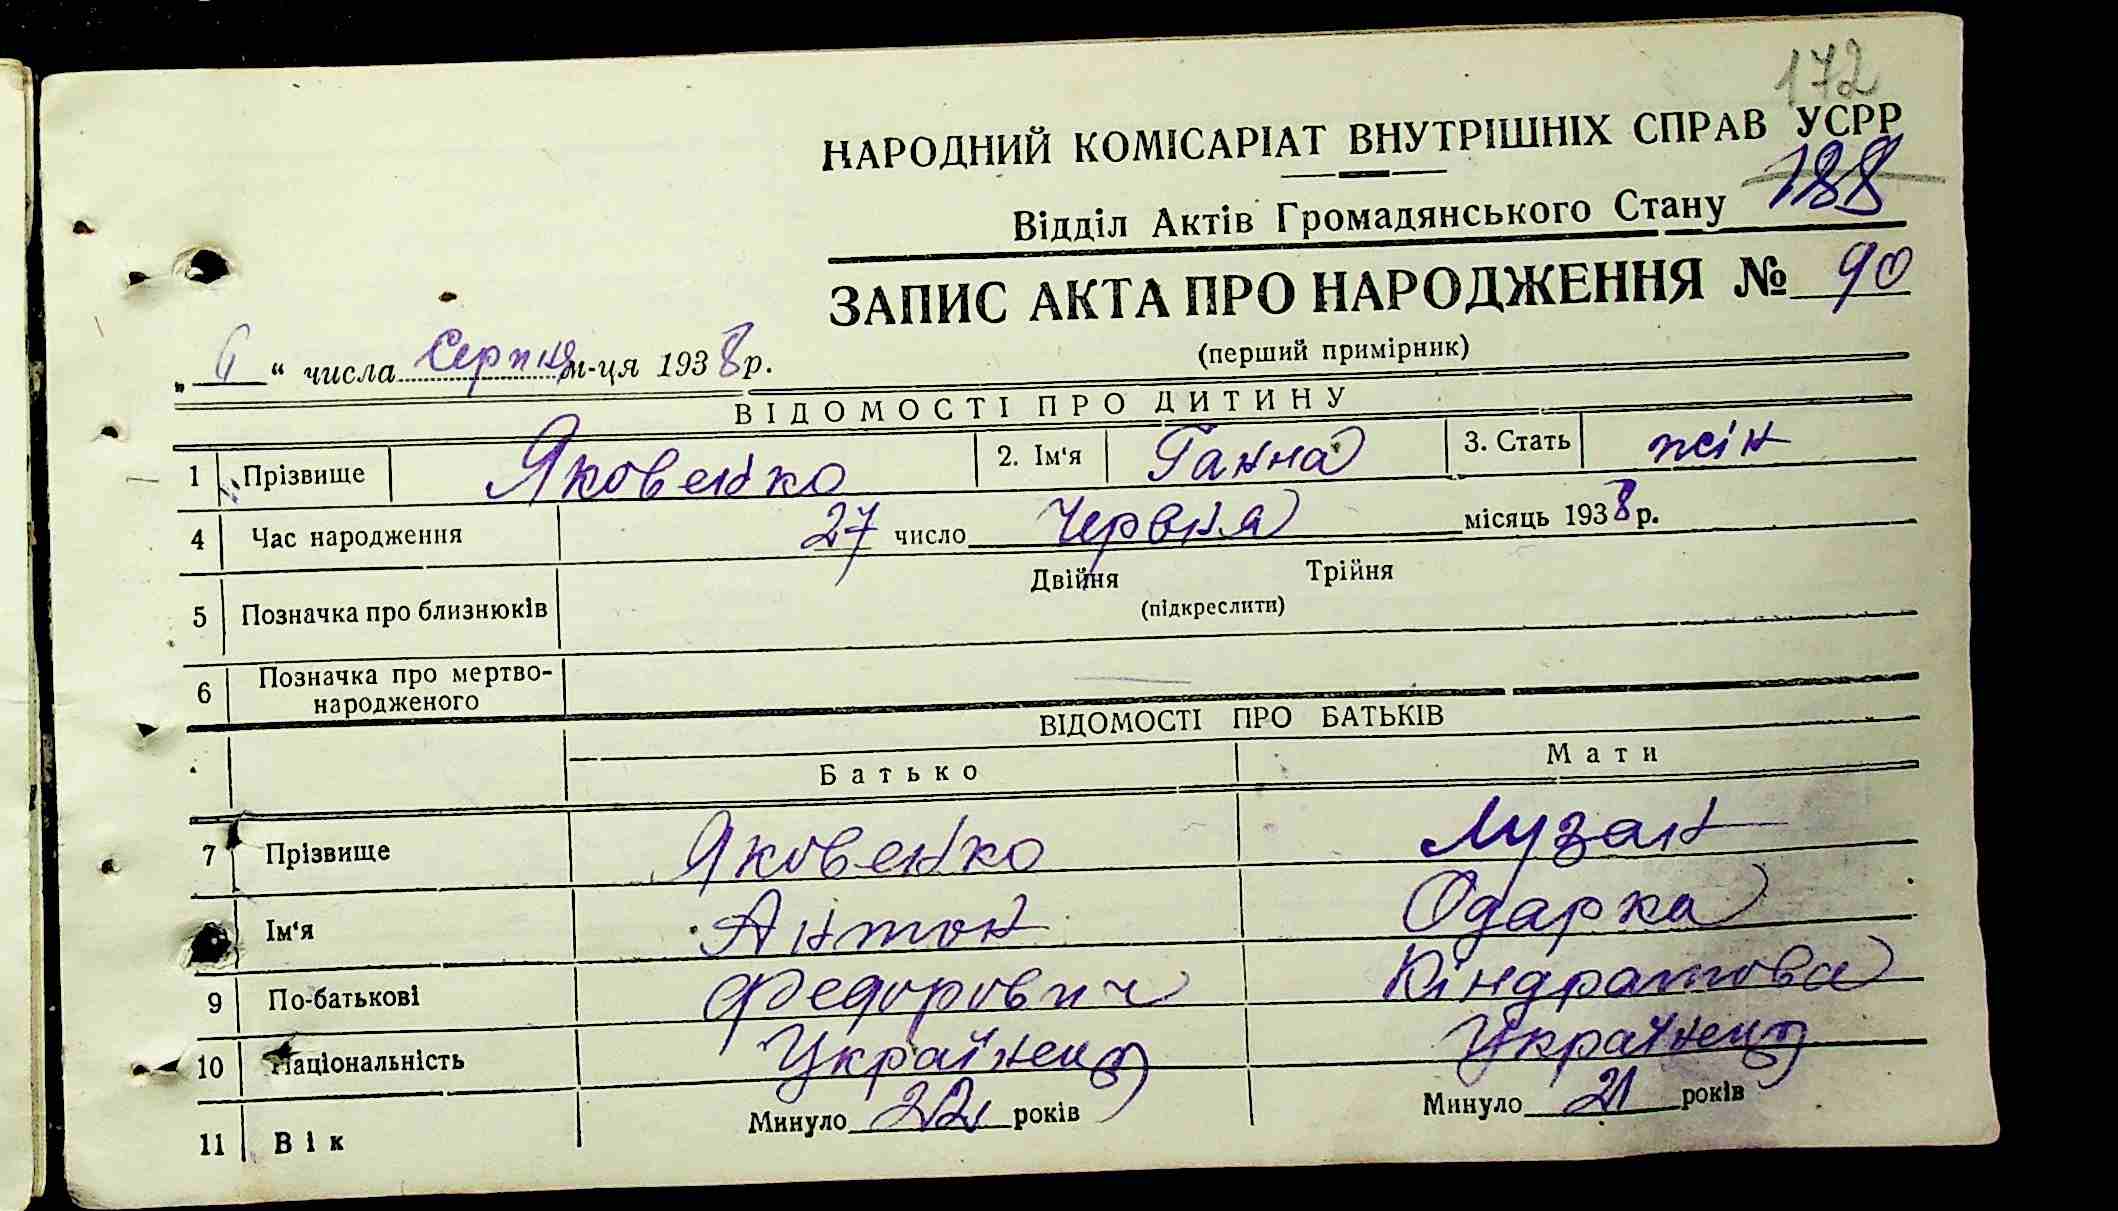 172
НАРОДНИЙ КОМІСАРІАТ ВНУТРІШНІХ СПРАВ УСРР
188
Відділ Актів Громадянського Стану
ЗАПИС АКТА ПРО НАРОДЖЕННЯ № 90
(перший примірник)
„ “ числа Серпня м-ця 1938 р.
ВІДОМОСТІ ПРО ДИТИНУ
1 Прізвище Яковенко 2. Ім'я Ганна 3. Стать жін
4 Час народження 27 число Червня місяць 1938 р.
5 Позначка про близнюків Двійня Трійня
(підкреслити)
6 Позначка про мертво-
народженого
ВІДОМОСТІ ПРО БАТЬКІВ
Батько Мати
7 Прізвище Яковенко Лузан
Ім'я Антон Одарка
9 По-батькові Федорович Кіндратова
10 Національність Українець Українець
11 Вік Минуло 22 років Минуло 21 років